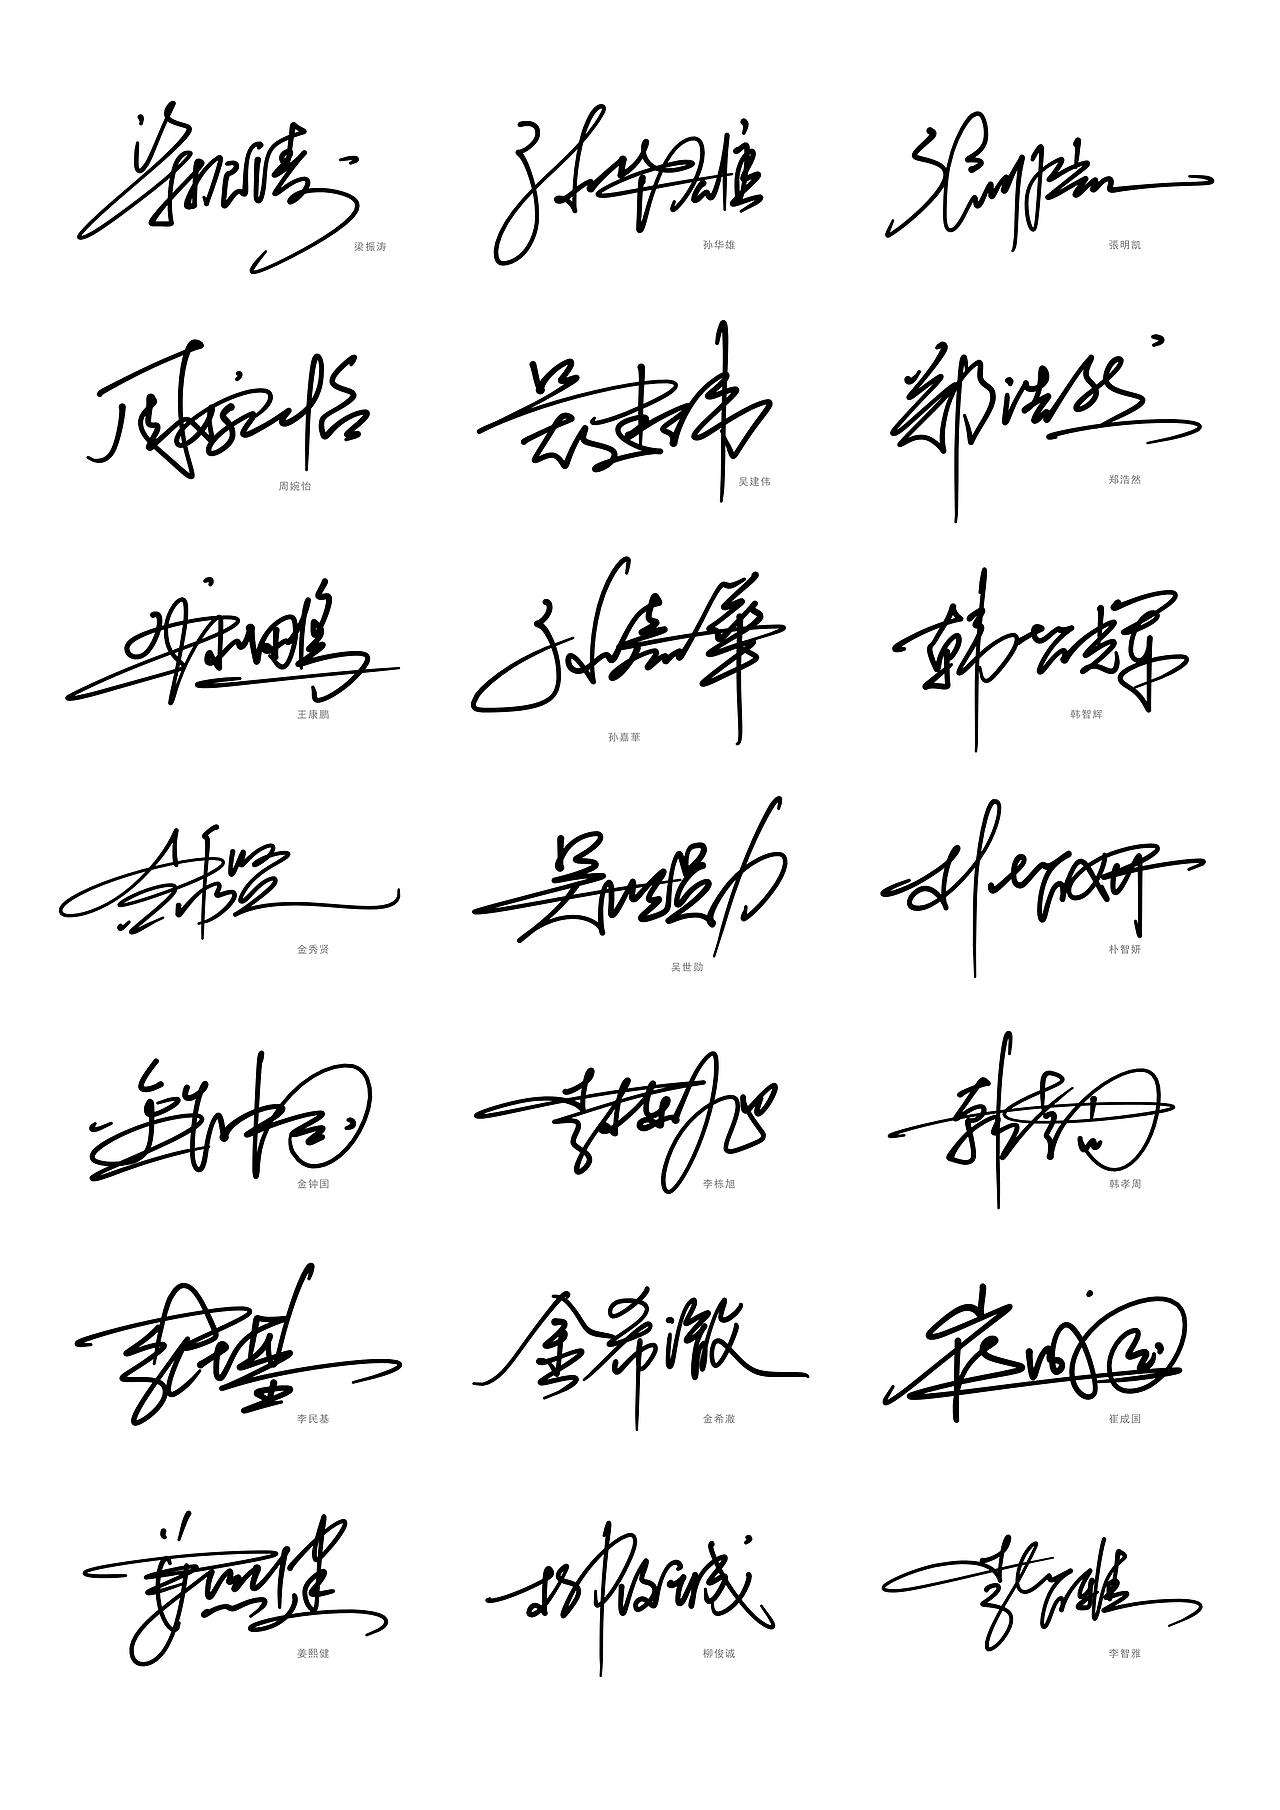 梁振涛 孙华雄 張明凯
周婉怡 吴建伟 郑浩然
王康鹏 孙嘉華 韩智辉
金秀贤 吴世勋 朴智妍
金钟国 李栋旭 韩孝周
李民基 金希澈 崔成国
姜熙健 柳俊诚 李智雅